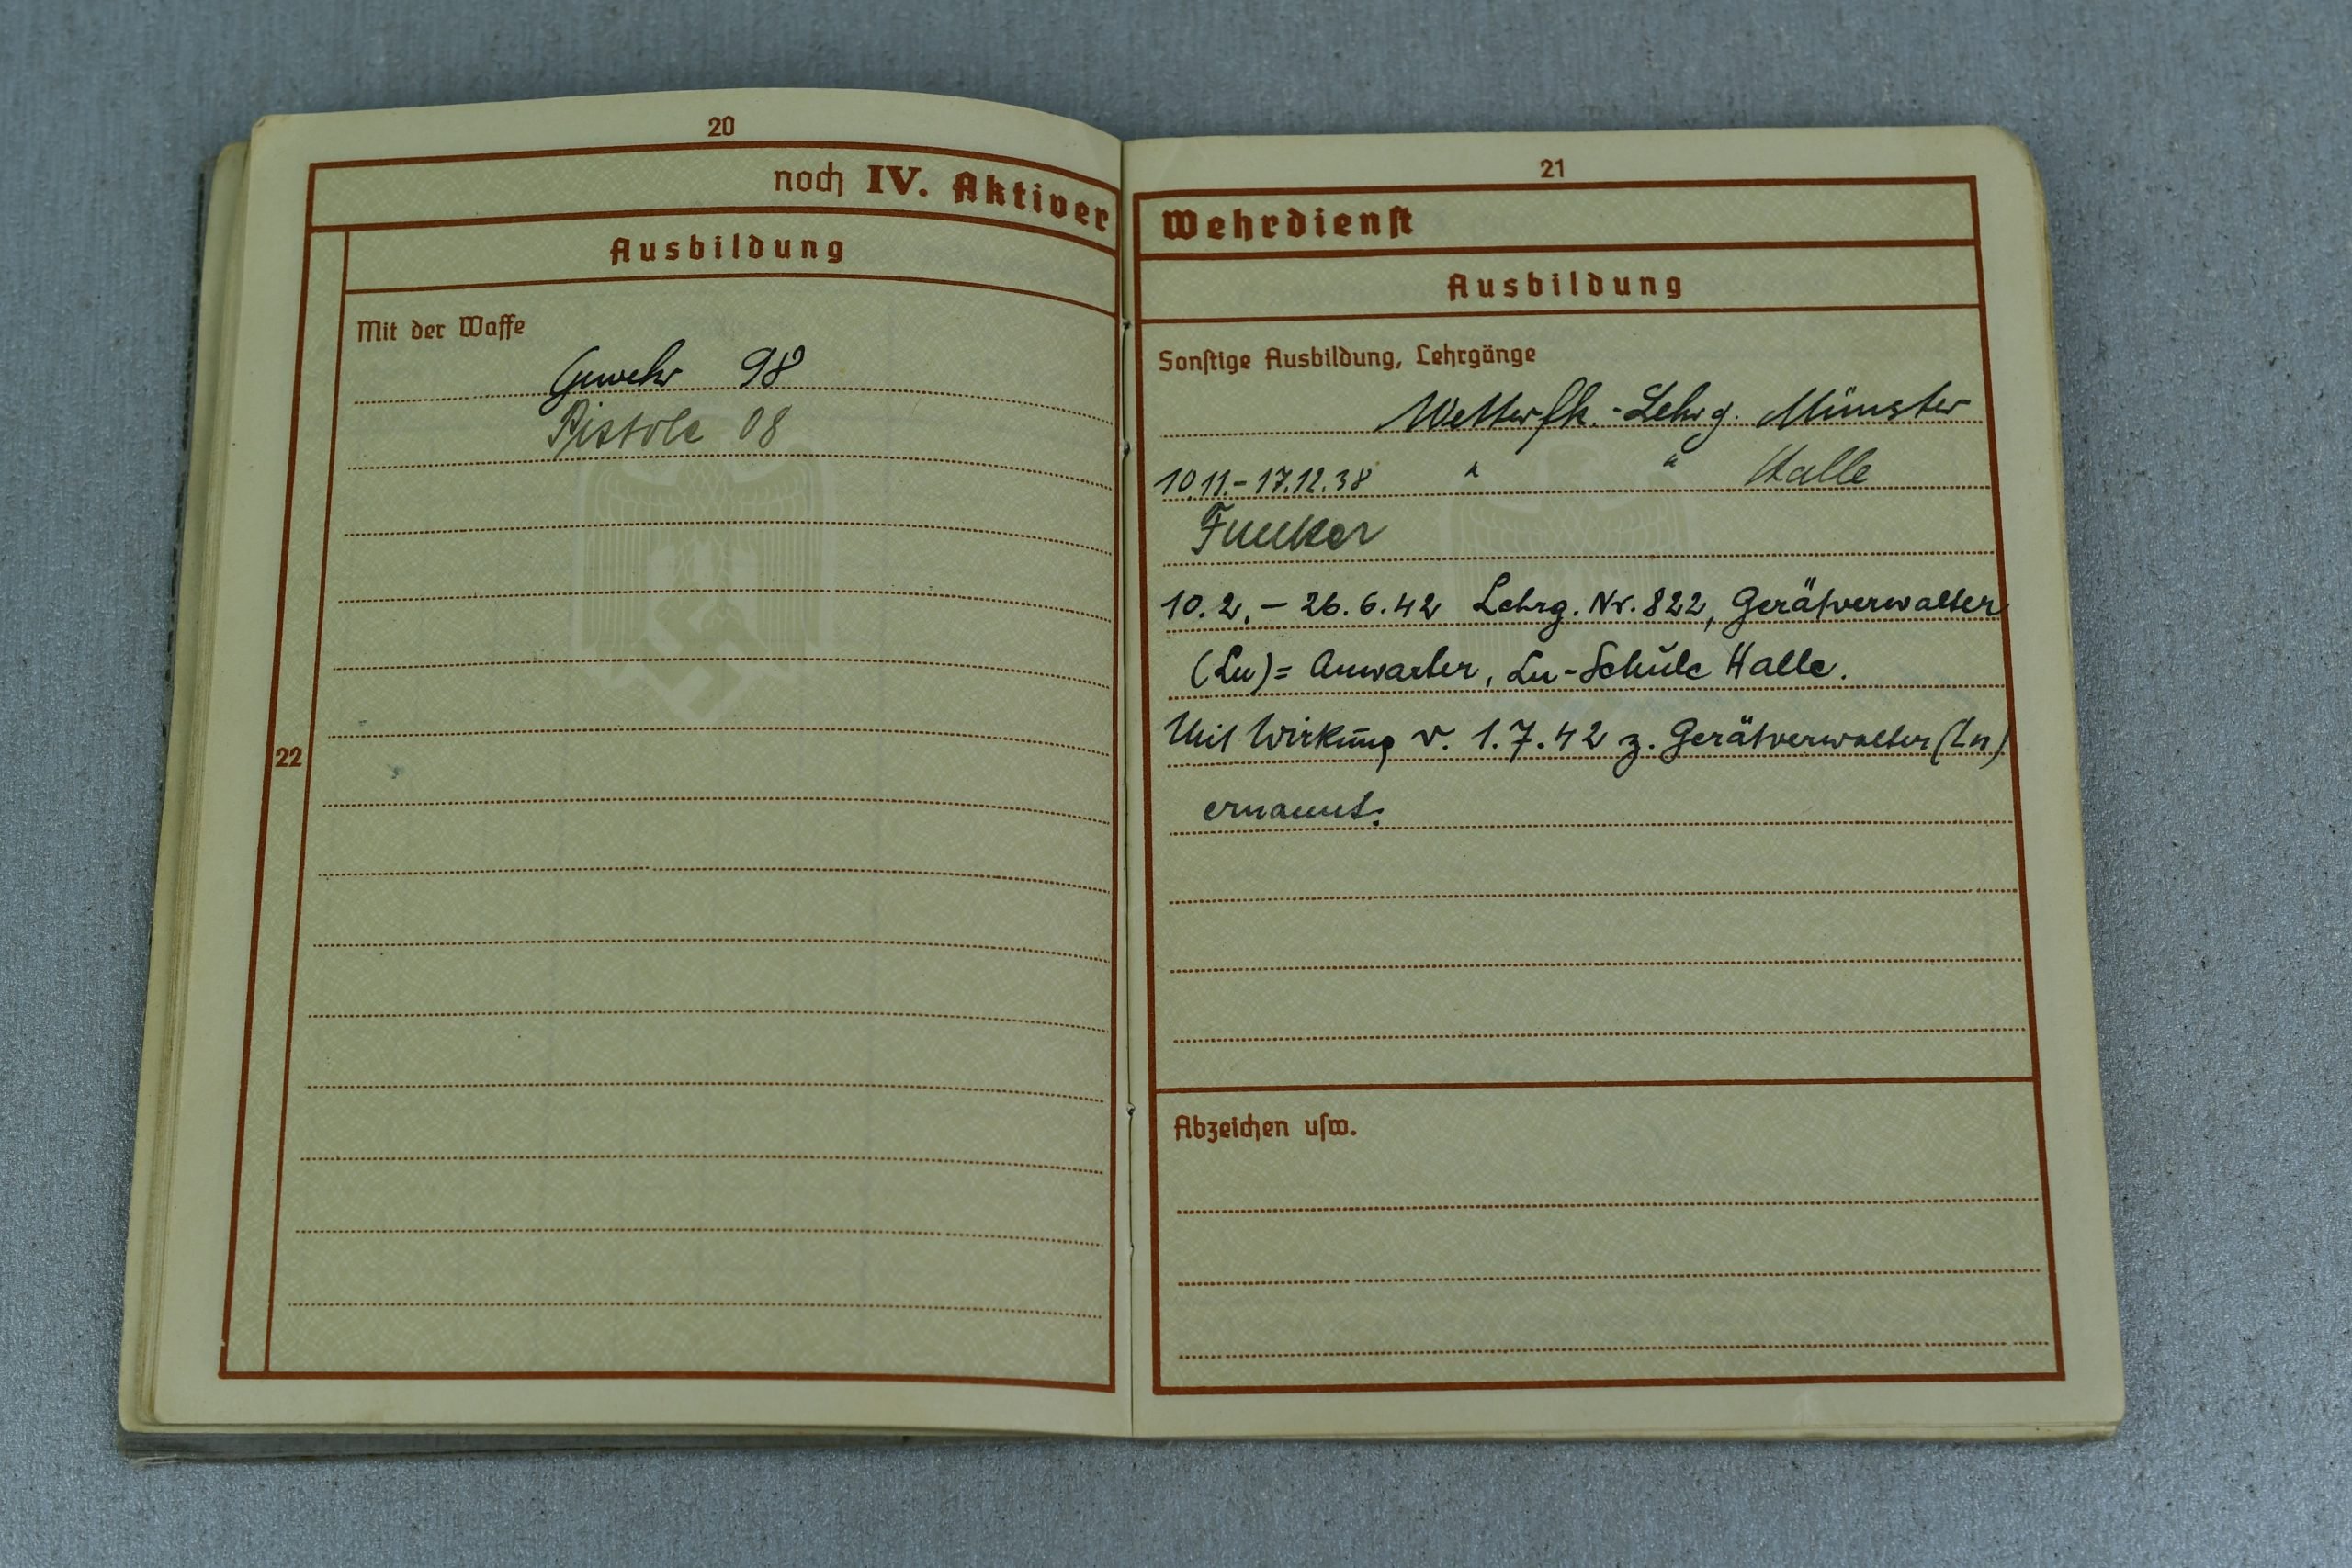 20
noch IV. Aktiver
Ausbildung
Mit der Waffe
Gewehr 98
Pistole 08
22
21
Wehrdienst
Ausbildung
Sonstige Ausbildung, Lehrgänge
Wetterfk.-Lehrg. Münster
10.11.-17.12.38 " " Halle
Funker
10.2.-26.6.42 Lehrg. Nr. 822, Gerätverwalter
(Ln)=Anwärter, Ln-Schule Halle.
Mit Wirkung v. 1.7.42 z. Gerätverwalter (Ln)
ernannt.
Abzeichen usw.